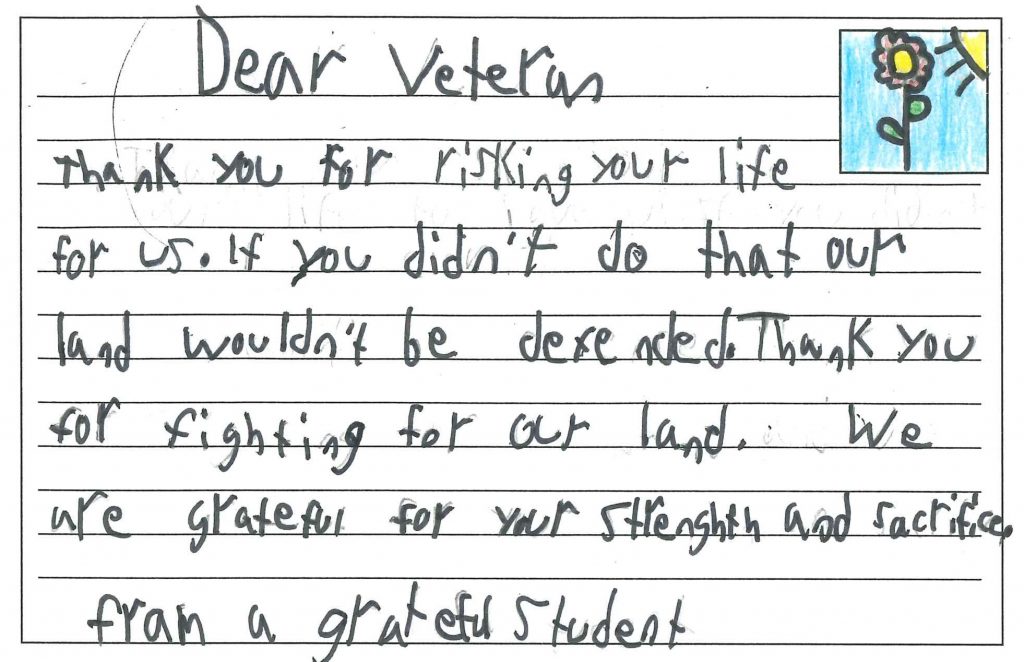 Dear Veteran
Thank you for risking your life
for us. If you didn't do that our
land wouldn't be defended. Thank you
for fighting for our land. We
are grateful for your strenghth and sacrifice.
fram a grateful student